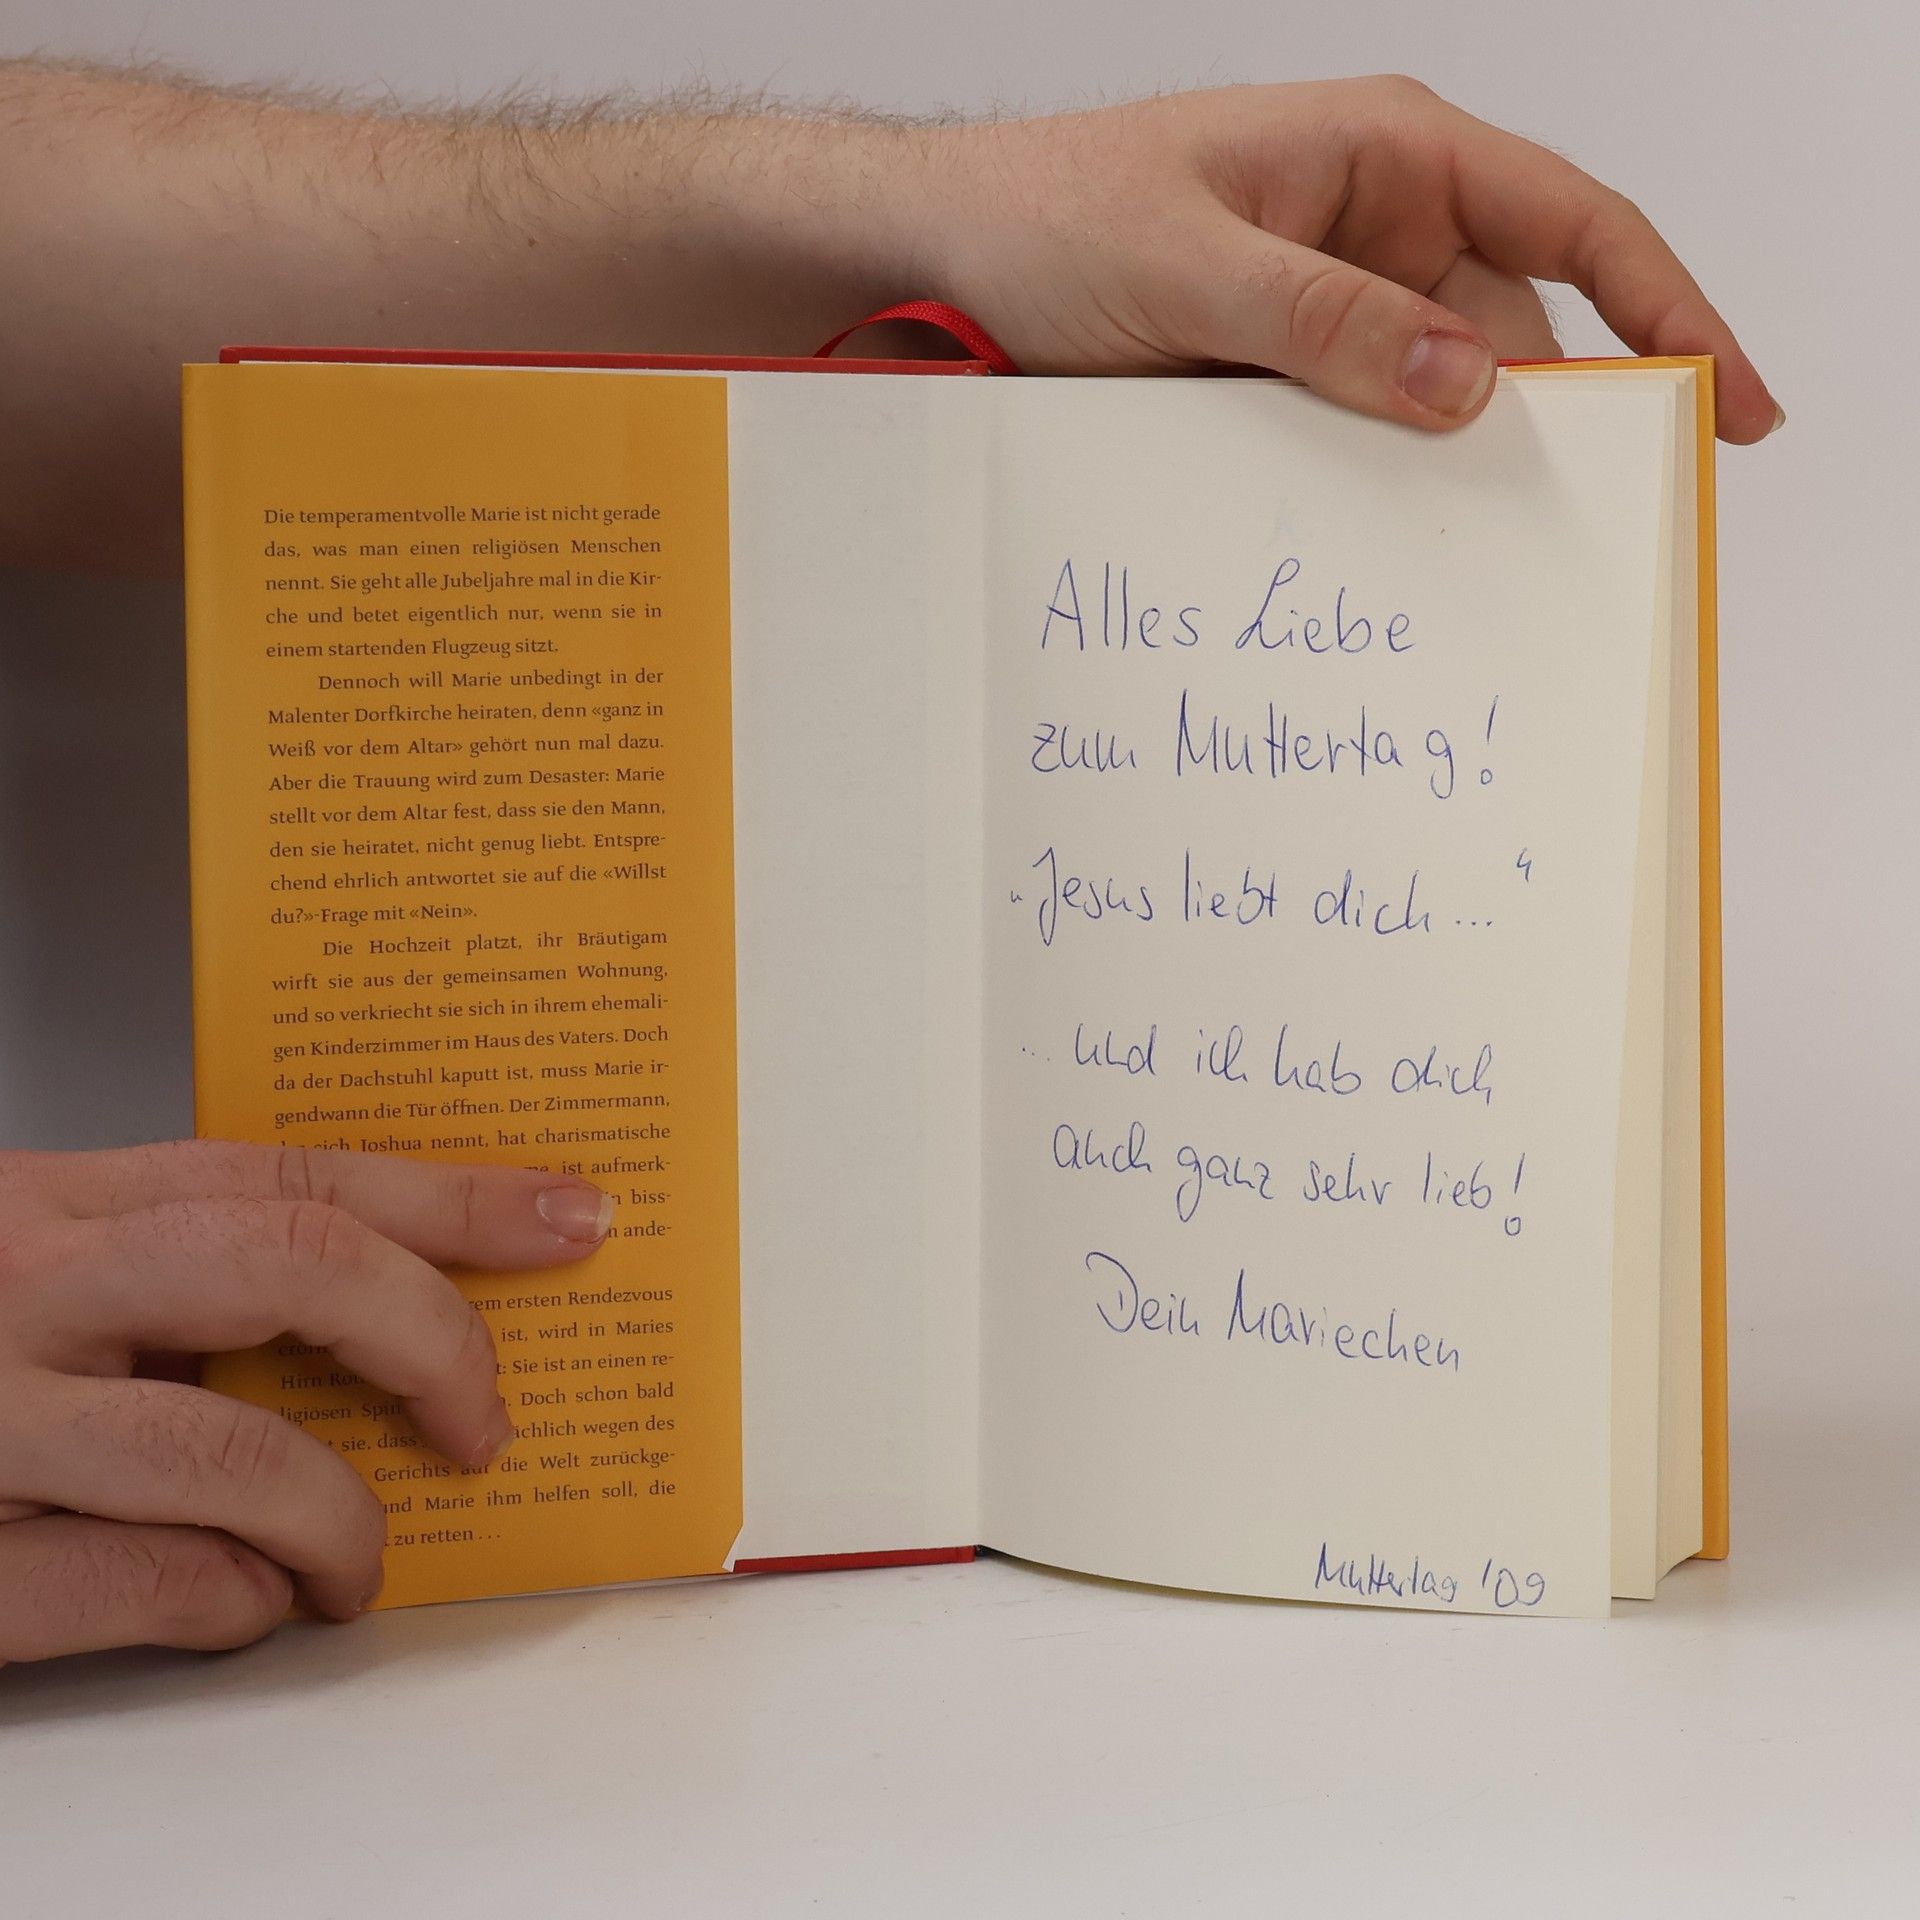 Die temperamentvolle Marie ist nicht gerade
das, was man einen religiösen Menschen
nennt. Sie geht alle Jubeljahre mal in die Kir-
che und betet eigentlich nur, wenn sie in
einem startenden Flugzeug sitzt.
Dennoch will Marie unbedingt in der
Malenter Dorfkirche heiraten, denn «ganz in
Weiß vor dem Altar» gehört nun mal dazu.
Aber die Trauung wird zum Desaster: Marie
stellt vor dem Altar fest, dass sie den Mann,
den sie heiratet, nicht genug liebt. Entspre-
chend ehrlich antwortet sie auf die «Willst
du?»-Frage mit «Nein».
Die Hochzeit platzt, ihr Bräutigam
wirft sie aus der gemeinsamen Wohnung,
und so verkriecht sie sich in ihrem ehemali-
gen Kinderzimmer im Haus des Vaters. Doch
da der Dachstuhl kaputt ist, muss Marie ir-
gendwann die Tür öffnen. Der Zimmermann,
sich Joshua nennt, hat charismatische
ist aufmerk-
biss-
ande-
ersten Rendezvous
ist, wird in Maries
Hirn Sie ist an einen re-
ligiösen Doch schon bald
sie, dass wegen des
Gerichts auf die Welt zurückge-
und Marie ihm helfen soll, die
zu retten ...
Alles Liebe
zum Muttertag!
„Jesus liebt dich ..."
... und ich hab dich
auch ganz sehr lieb!
Dein Mariechen
Muttertag '09